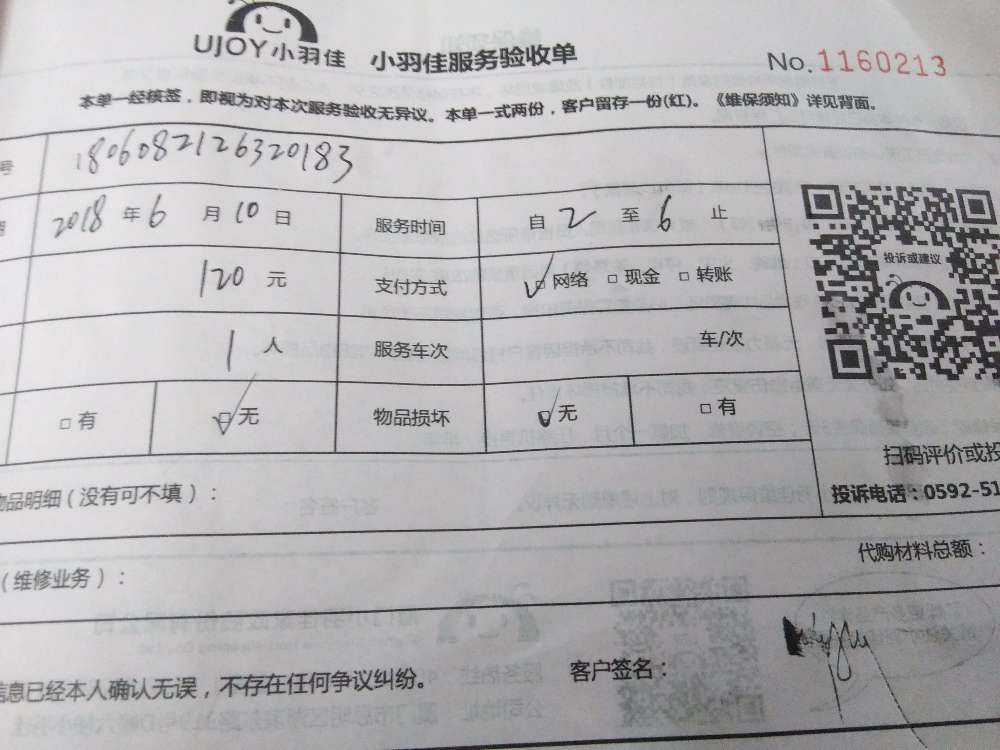 UJOY小羽佳 小羽佳服务验收单 No.1160213
本单一经核签，即视为对本次服务验收无异议。本单一式两份，客户留存一份(红)。《维保须知》详见背面。
号 1806082126320183
2018 年 6 月 10 日 服务时间 自 2 至 6 止
120 元 支付方式 网络 现金 转账
投诉或建议
1 人 服务车次 车/次
有 无 物品损坏 无 有
扫码评价或投
物品明细（没有可不填）：
投诉电话：0592-51
代购材料总额：
（维修业务）：
客户签名：
信息已经本人确认无误，不存在任何争议纠纷。